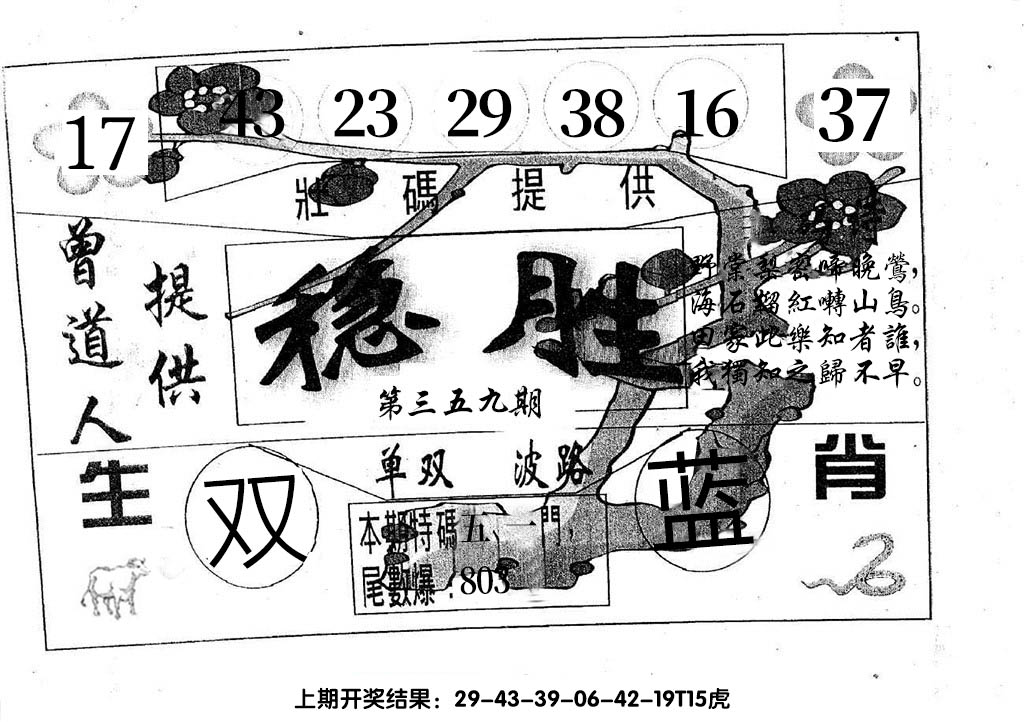 17 43 23 29 38 16 37
壯碼提供
特
曾道人
提供
稳胜
第三五九期
野棠梨密啼晚鶯，
海石榴紅囀山鳥。
田家此樂知者誰，
我獨知之歸不早。
生 肖
单双 波路
双 蓝
本期特碼五、一門，
尾數爆：803
上期开奖结果：29-43-39-06-42-19T15虎